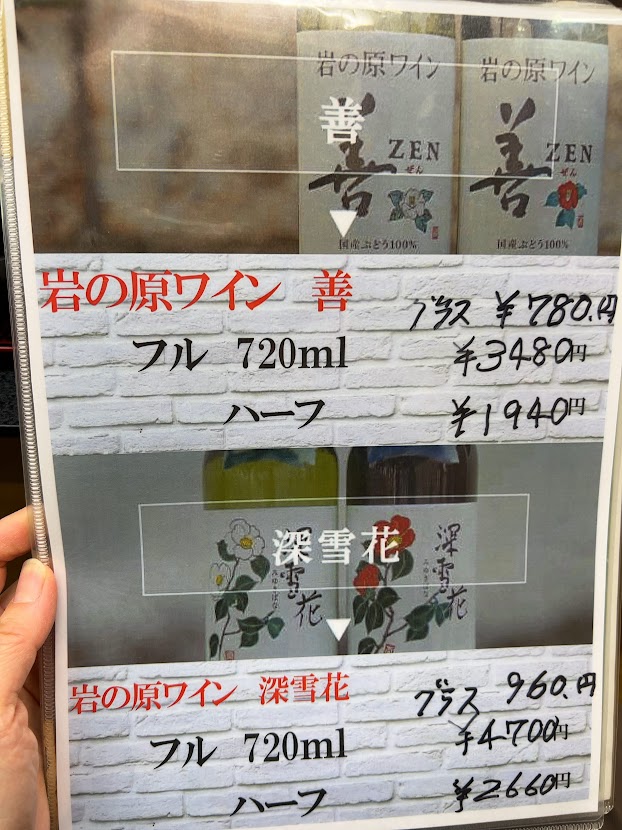 岩の原ワイン
善
ZEN
ぜん
国産ぶどう100%
岩の原ワイン
善
ZEN
ぜん
国産ぶどう100%
善
岩の原ワイン 善 グラス ¥780.円
フル 720ml ¥3480円
ハーフ ¥1940円
深雪花
みゆきばな
深雪花
みゆきばな
深雪花
岩の原ワイン 深雪花 グラス 960.円
フル 720ml ¥4700円
ハーフ ¥2660円